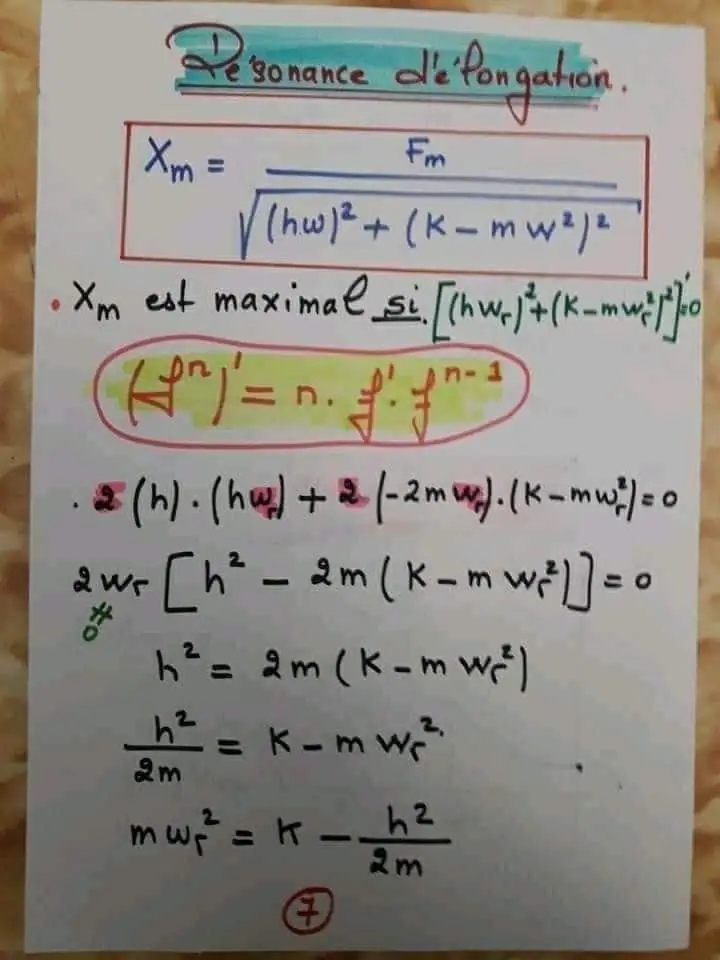 Résonance d'élongation.
Xm = Fm / √((hw)² + (K - mw²)²)
• Xm est maximal si. [(hwr)² + (K - mwr²)²]' = 0
(fⁿ)' = n. f'. fⁿ⁻¹
. 2 (h) . (hwr) + 2 (-2mwr) . (K - mwr²) = 0
2wr [h² - 2m (K - mwr²)] = 0
≠
0
h² = 2m (K - mwr²)
h²/2m = K - mwr²
mwr² = K - h²/2m
7